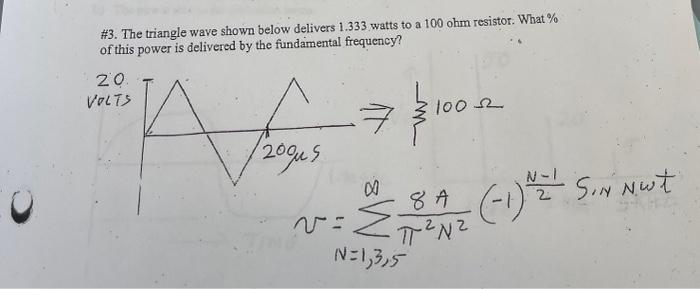 #3. The triangle wave shown below delivers 1.333 watts to a 100 ohm resistor. What %
of this power is delivered by the fundamental frequency?
20
VOLTS
⇒ 100 Ω
200μs
v = ∑_{N=1,3,5}^{∞} \frac{8A}{π²N²} (-1)^{\frac{N-1}{2}} SIN Nωt